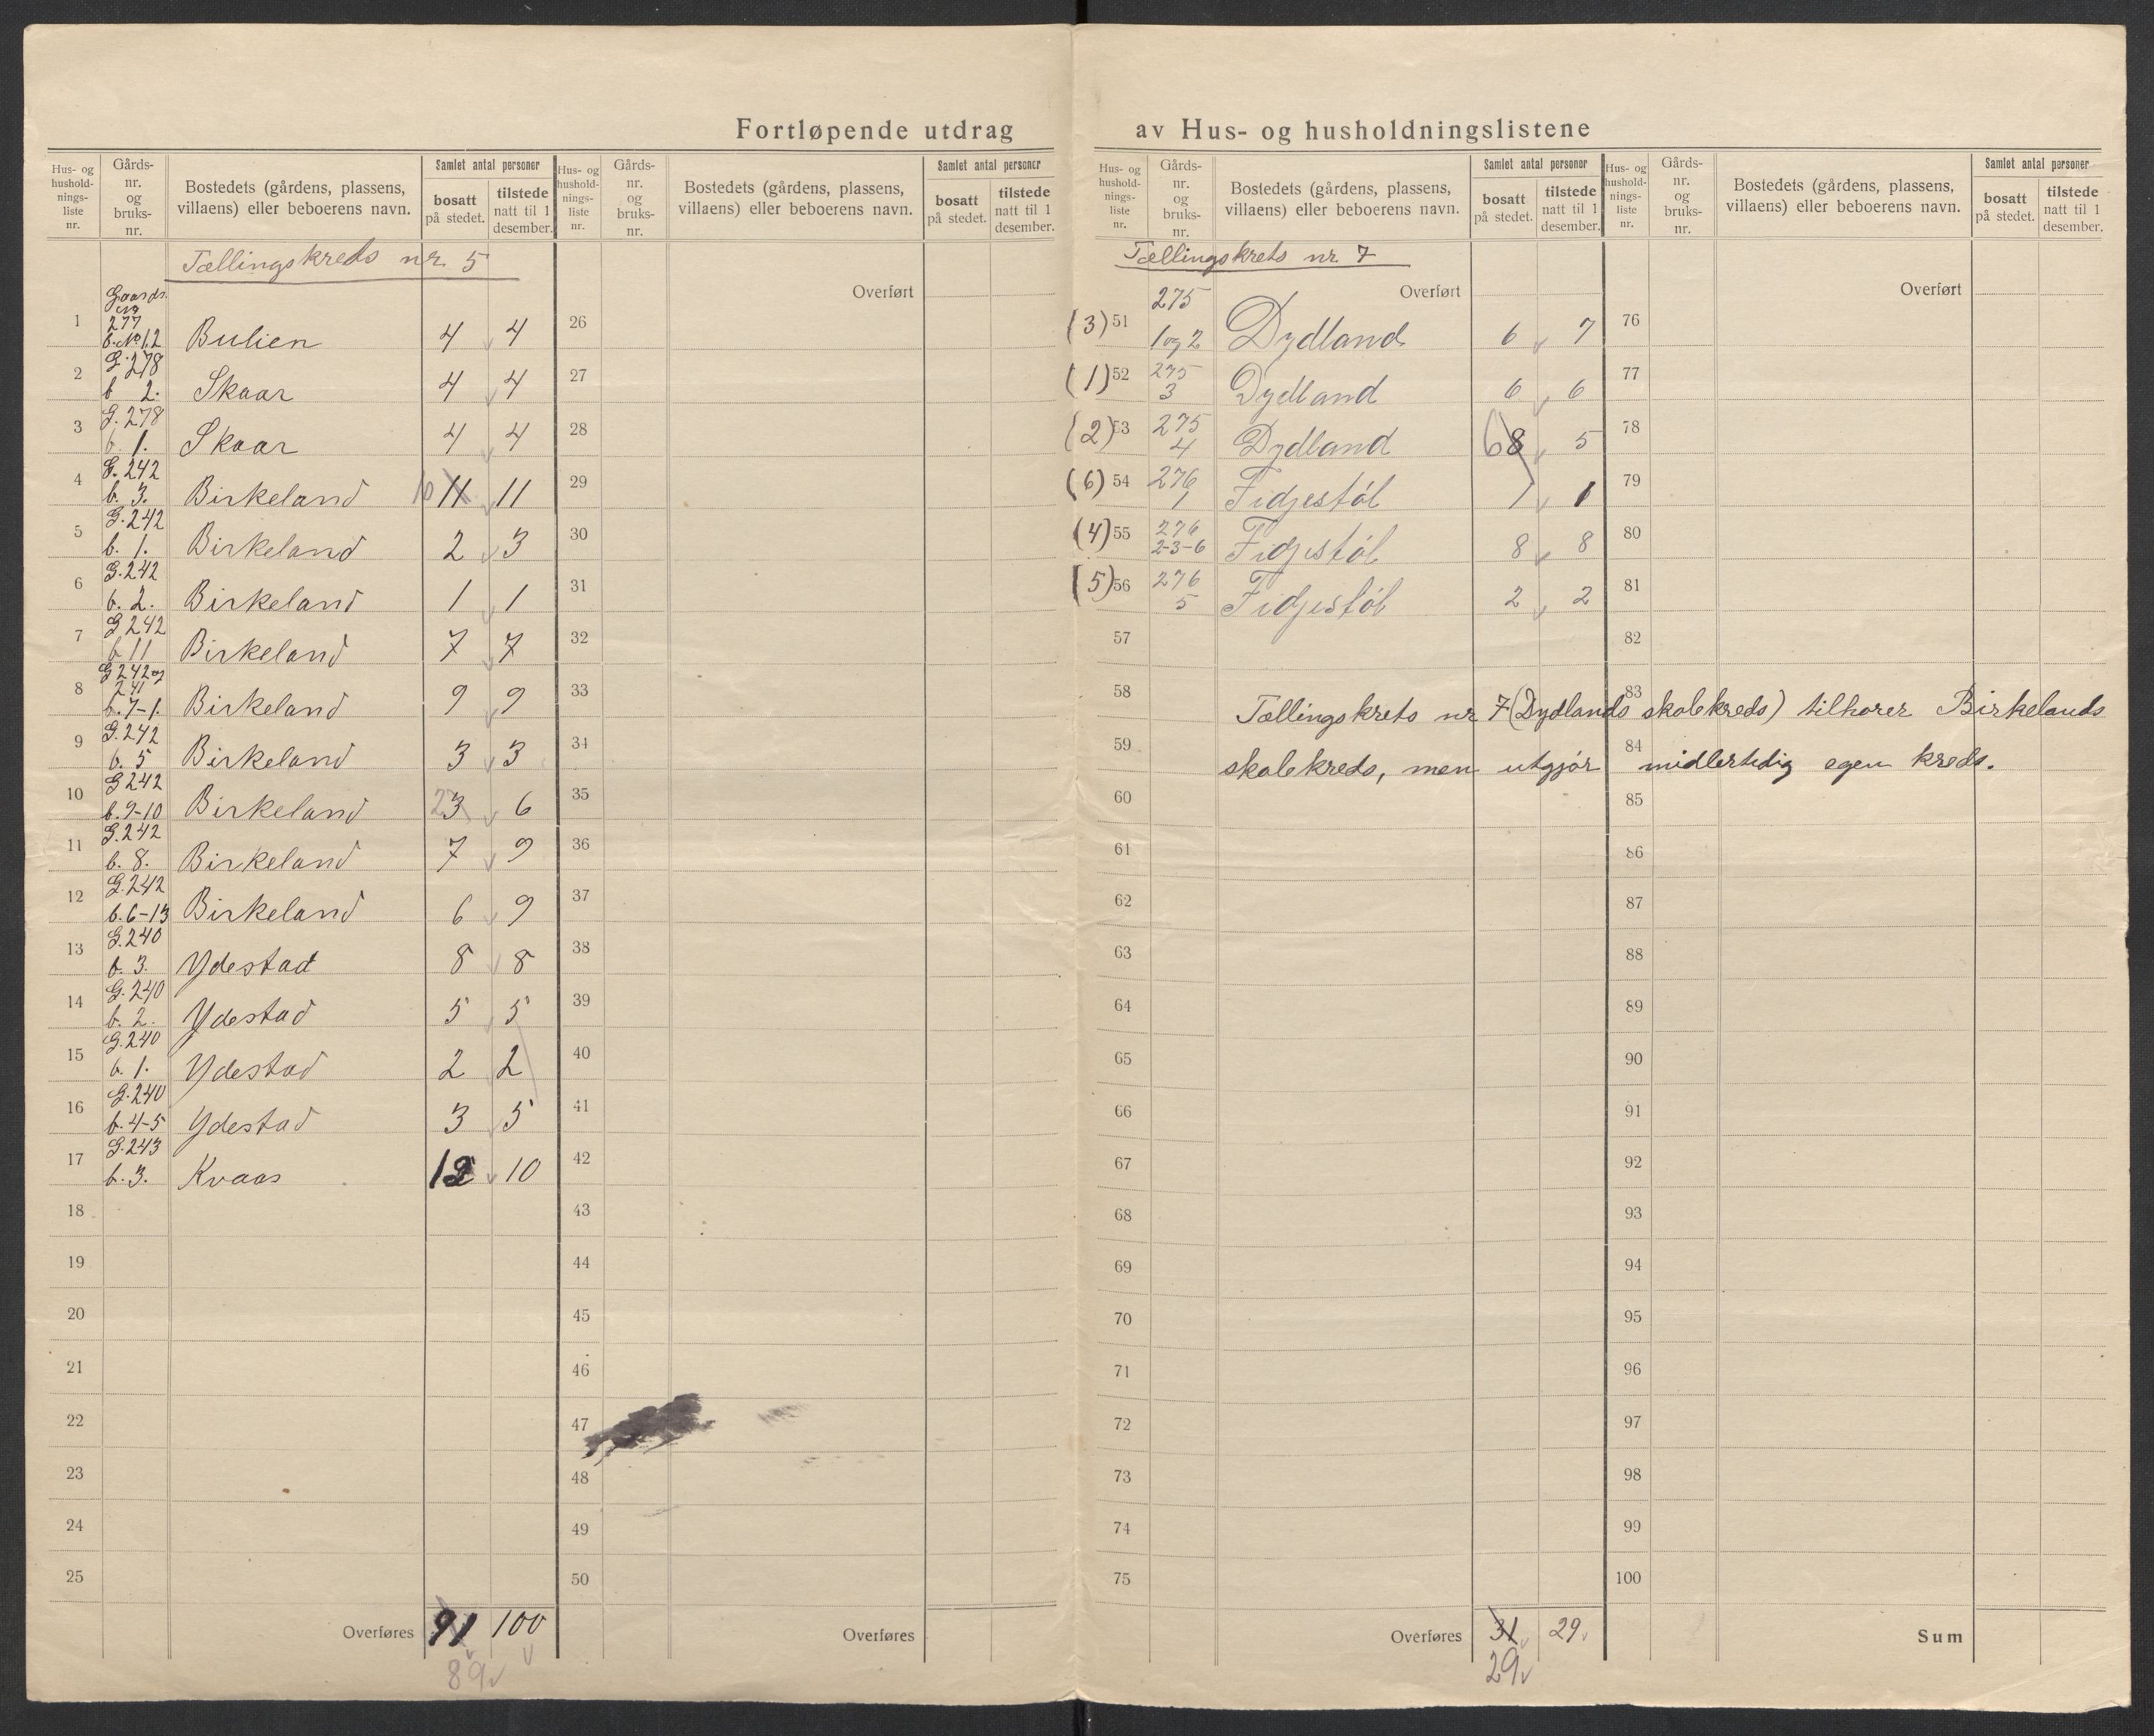 Fortløpende utdrag av Hus- og husholdningslistene
Hus- og hushold-nings-liste nr. Gårds-nr. og bruks-nr. Bostedets (gårdens, plassens, villaens) eller beboerens navn. Samlet antal personer bosatt på stedet. tilstede natt til 1 desember.
Tællingskreds nr. 5
1 Gaards nr 277 b. No 1,2 Bulien 4 4
2 G. 278 b 2. Skaar 4 4
3 G. 278 b. 1. Skaar 4 4
4 G. 242 b. 3. Birkeland 10 11 11
5 G. 242 b. 1. Birkeland 2 3
6 G. 242 b. 2. Birkeland 1 1
7 G 242 b 11 Birkeland 7 7
8 G 242 og 241 b. 7-1. Birkeland 9 9
9 G. 242 b. 5 Birkeland 3 3
10 G 242 b. 9-10 Birkeland 2 3 6
11 G. 242 b. 8. Birkeland 7 9
12 G. 242 b. 6-13 Birkeland 6 9
13 G. 240 b. 3. Ydestad 8 8
14 G. 240 b. 2. Ydestad 5 5
15 G. 240 b. 1. Ydestad 2 2
16 G. 240 b. 4-5 Ydestad 3 5
17 G. 243 b. 3. Kvaas 12 10
18
19
20
21
22
23
24
25
Overføres 91 100
89
Hus- og hushold-nings-liste nr. Gårds-nr. og bruks-nr. Bostedets (gårdens, plassens, villaens) eller beboerens navn. Samlet antal personer bosatt på stedet. tilstede natt til 1 desember.
Overført
26
27
28
29
30
31
32
33
34
35
36
37
38
39
40
41
42
43
44
45
46
47
48
49
50
Overføres
Hus- og hushold-nings-liste nr. Gårds-nr. og bruks-nr. Bostedets (gårdens, plassens, villaens) eller beboerens navn. Samlet antal personer bosatt på stedet. tilstede natt til 1 desember.
Tællingskrets nr 7
Overført
(3) 51 275 1 og 2 Dydland 6 7
(1) 52 275 3 Dydland 6 6
(2) 53 275 4 Dydland 6 8 5
(6) 54 276 1 Fidjestøl 1 1
(4) 55 276 2-3-6 Fidjestøl 8 8
(5) 56 276 5 Fidjestøl 2 2
57
58 Tællingskrets nr 7 (Dydlands skolekreds) tilhører Birkelands
59 skolekreds, men utgjør midlertidig egen kreds.
60
61
62
63
64
65
66
67
68
69
70
71
72
73
74
75
Overføres 31 29
29
Hus- og hushold-nings-liste nr. Gårds-nr. og bruks-nr. Bostedets (gårdens, plassens, villaens) eller beboerens navn. Samlet antal personer bosatt på stedet. tilstede natt til 1 desember.
Overført
76
77
78
79
80
81
82
83
84
85
86
87
88
89
90
91
92
93
94
95
96
97
98
99
100
Sum